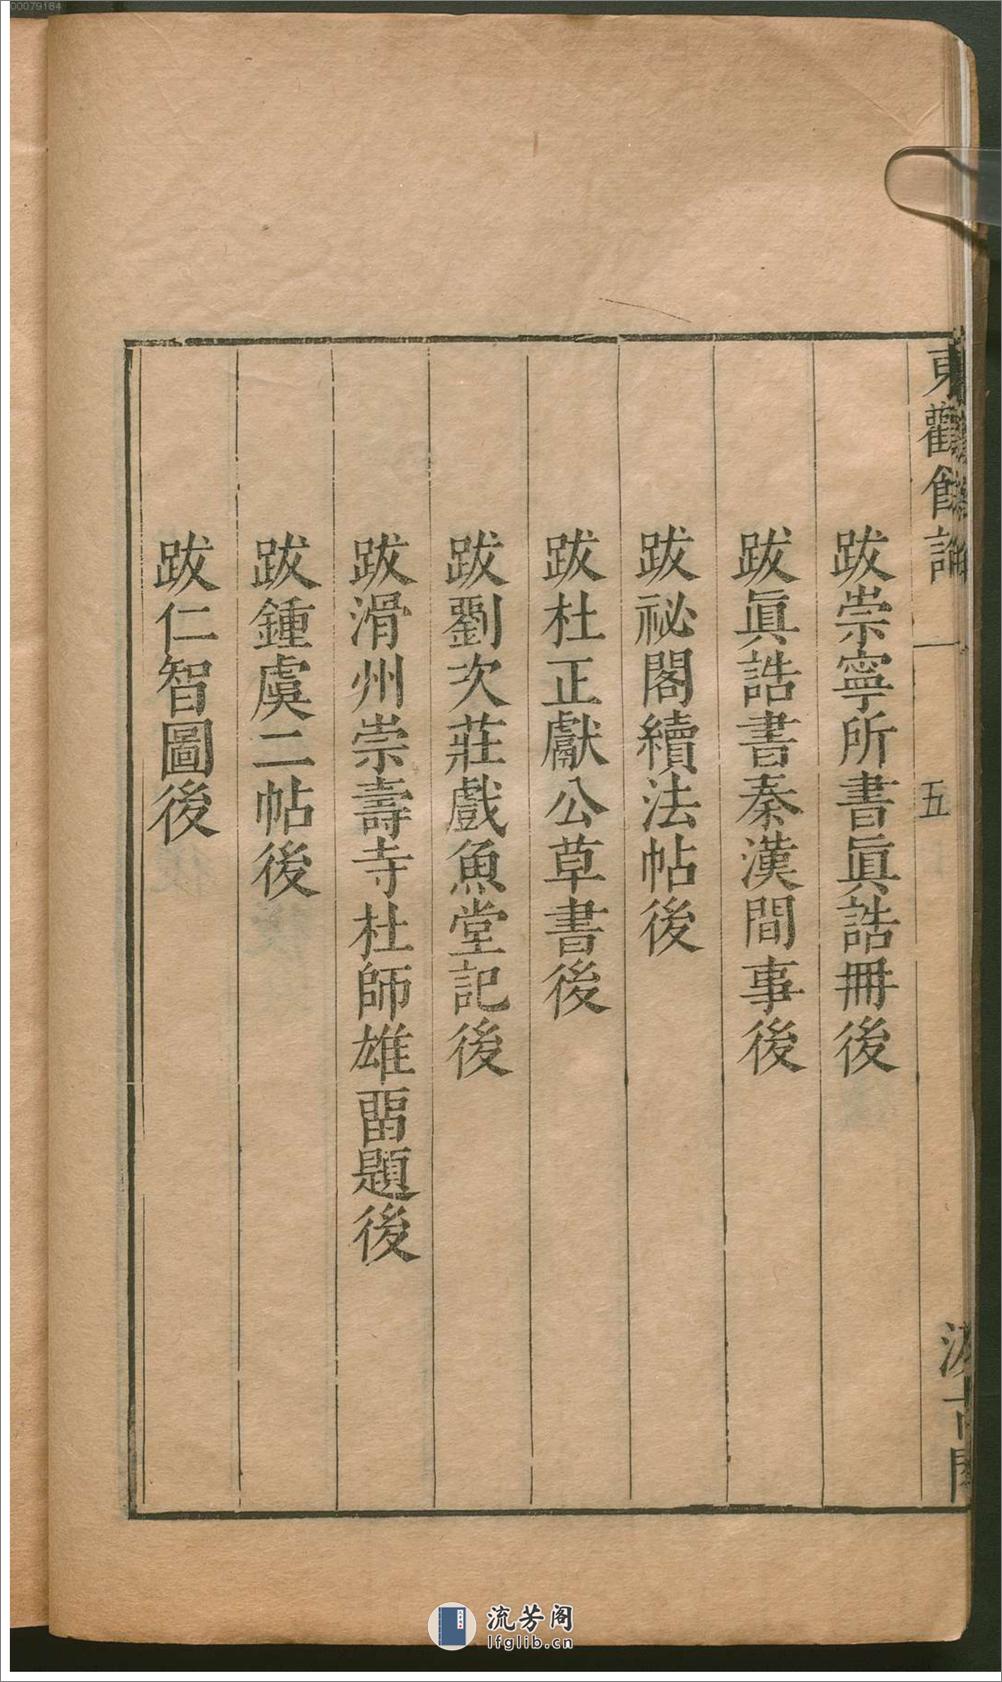 東觀餘論 一 五 汲古閣
跋崇寧所書眞誥冊後
跋眞誥書秦漢間事後
跋祕閣續法帖後
跋杜正獻公草書後
跋劉次莊戲魚堂記後
跋滑州崇壽寺杜師雄畱題後
跋鍾虞二帖後
跋仁智圖後
00079184
流芳阁
lfglib.cn